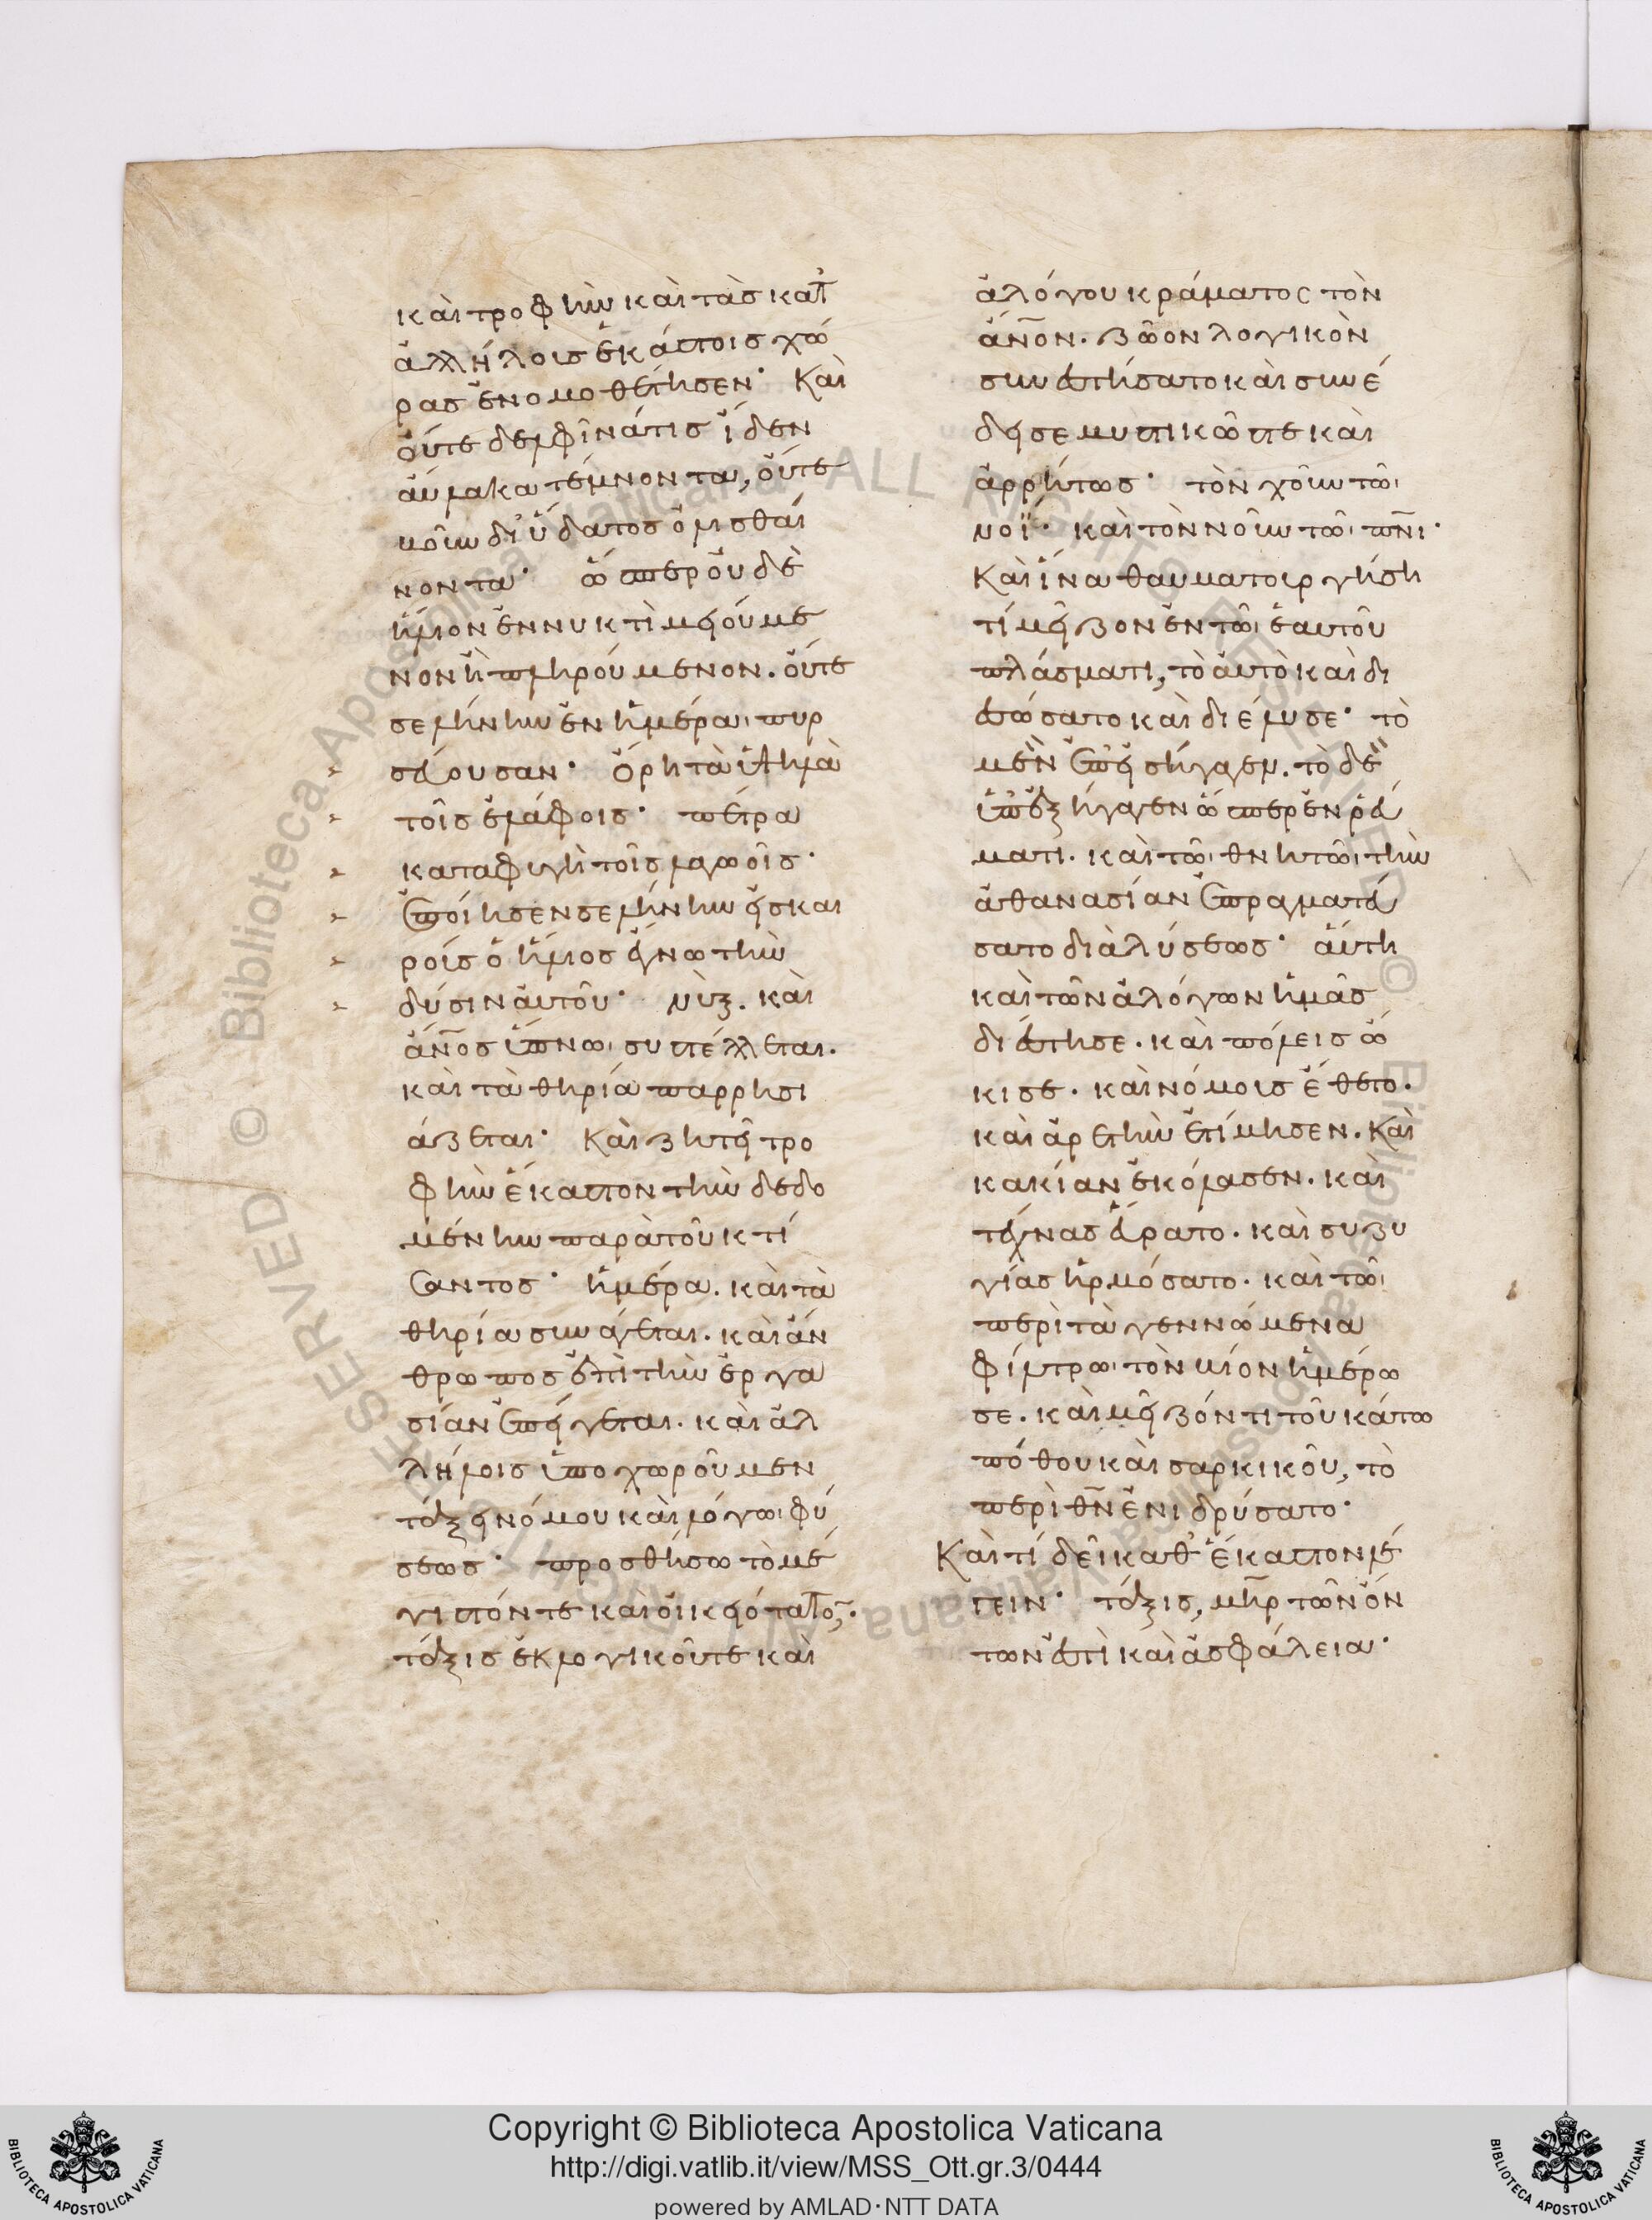 καὶ τροφὴν καὶ τὰς κατ
ἀλλήλοις ἑκάστοις χώ
ρας ἐνομοθέτησεν· Καὶ
οὔτε δελφῖνά τις ἴδεν
αὔλακα τέμνοντα, οὔτε
βοῦν δι' ὕδατος ὀλισθαί
νοντα· ὥσπερ οὐδὲ
ἥλιον ἐν νυκτὶ μειούμε
νον ἢ πληρούμενον. οὔτε
σελήνην ἐν ἡμέρα πυρ
σεύουσαν· ὄρη τὰ ὑψηλὰ
τοῖς ἐλάφοις· πέτρα
καταφυγὴ τοῖς λαγωοῖς·
ἐποίησεν σελήνην εἰς και
ροὺς ὁ ἥλιος ἔγνω τὴν
δύσιν αὐτοῦ· νὺξ. καὶ
ἄνος ὕπνω συστέλλεται.
καὶ τὰ θηρία παρρησι
άζεται· Καὶ ζητεῖ τρο
φὴν ἕκαστον τὴν δεδο
μένην παρὰ τοῦ κτί
σαντος· ἡμέρα. καὶ τὰ
θηρία συνάγεται. καὶ ἄν
θρωπος ἐπὶ τὴν ἐργα
σίαν ἐπείγεται. καὶ ἀλ
λήλοις ὑποχωροῦμεν
τάξει νόμου καὶ λόγω φύ
σεως· προσθήσω τὸ μέ
γιστόν τε καὶ οἰκειότατον·
τάξις ἐκ λογικοῦ τε καὶ
ἀλόγου κράματος τὸν
ἄνον. ζῶον λογικὸν
συνεστήσατο καὶ συνέ
δησε μυστικῶς τε καὶ
ἀρρήτως· τὸν χοῦν τῶ
νοΐ· καὶ τὸν νοῦν τῶ πνι·
Καὶ ἵνα θαυματουργήση
τί μεῖζον ἐν τῶ ἑαυτοῦ
πλάσματι, τὸ αὐτὸ καὶ δι
εσώσατο καὶ διέλυσε· τὸ
μὲν ἐπεισήγαγεν. τὸ δὲ
ὑπεξήγαγεν ὥσπερ ἐν ῥεύ
ματι. καὶ τῶ θνητῶ τὴν
ἀθανασίαν ἐπραγματεύ
σατο διὰ λύσεως· αὕτη
καὶ τῶν ἀλόγων ἡμᾶς
διέστησε. καὶ πόλεις ὤ
κισε. καὶ νόμοις ἔθετο.
καὶ ἀρετὴν ἐτίμησεν. Καὶ
κακίαν ἐκόλασεν. καὶ
τέχνας εὕρατο. καὶ συζυ
γίας ἡρμόσατο. καὶ τῶ
περὶ τὰ γεννώμενα
φίλτρω τὸν βίον ἡμέρω
σε. καὶ μεῖζόν τι τοῦ κάτω
πόθου καὶ σαρκικοῦ, τὸ
περὶ θν ἐνιδρύσατο·
Καὶ τί δεῖ καθ' ἕκαστον λέ
γειν· τάξις, μηρ τῶν ὄν
των ἐστὶ καὶ ἀσφάλεια·
Copyright © Biblioteca Apostolica Vaticana
http://digi.vatlib.it/view/MSS_Ott.gr.3/0444
powered by AMLAD·NTT DATA
BIBLIOTECA APOSTOLICA VATICANA
BIBLIOTECA APOSTOLICA VATICANA